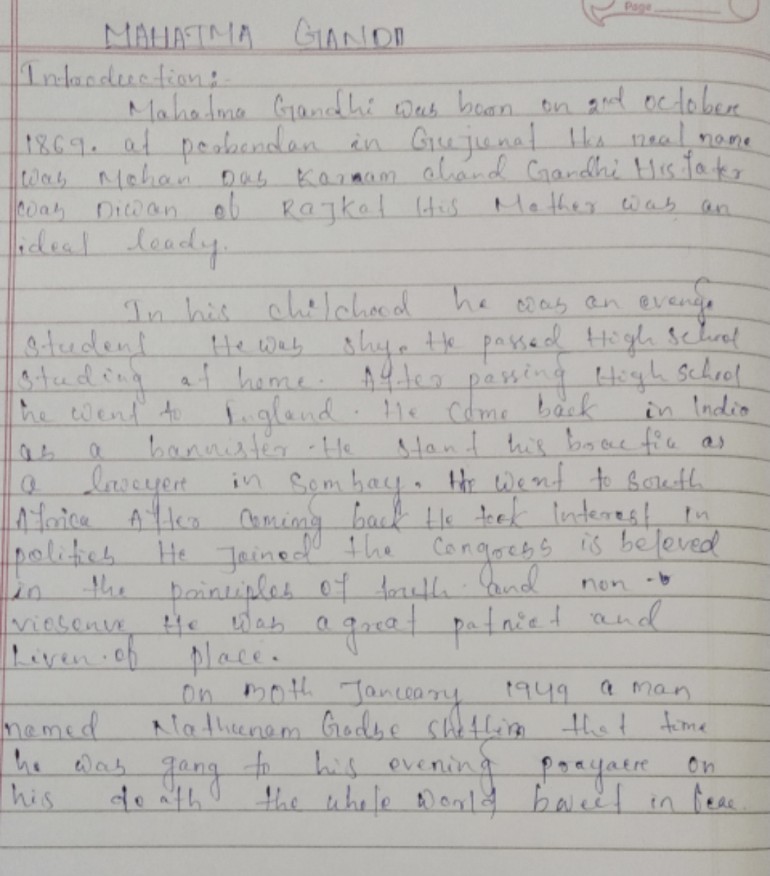 Page
MAHATMA GANDD
Introduction:-
Mahatma Gandhi was born on 2nd october
1869. at porbandan in Gujunat His real name
was Mohan Das Karmam chand Gandhi His fater
was Diwan ob Rajkot His Mother was an
ideal leady.
In his chilchood he was an averge
Student He was shy. He passed High School
studing at home. After passing High School
he went to England. He come back in India
as a bannister. He stant his as
a lawyere in Bombay. He went to South
Africa After coming back He took Interest in
polities He Joined the Congress is beloved
in the principles of truth and non -
He was a great patniot and
of place.
on 30th Januaary 1949 a man
named Nathunam Godse that time
he was gang to his evening prayaere on
his death the whole world in